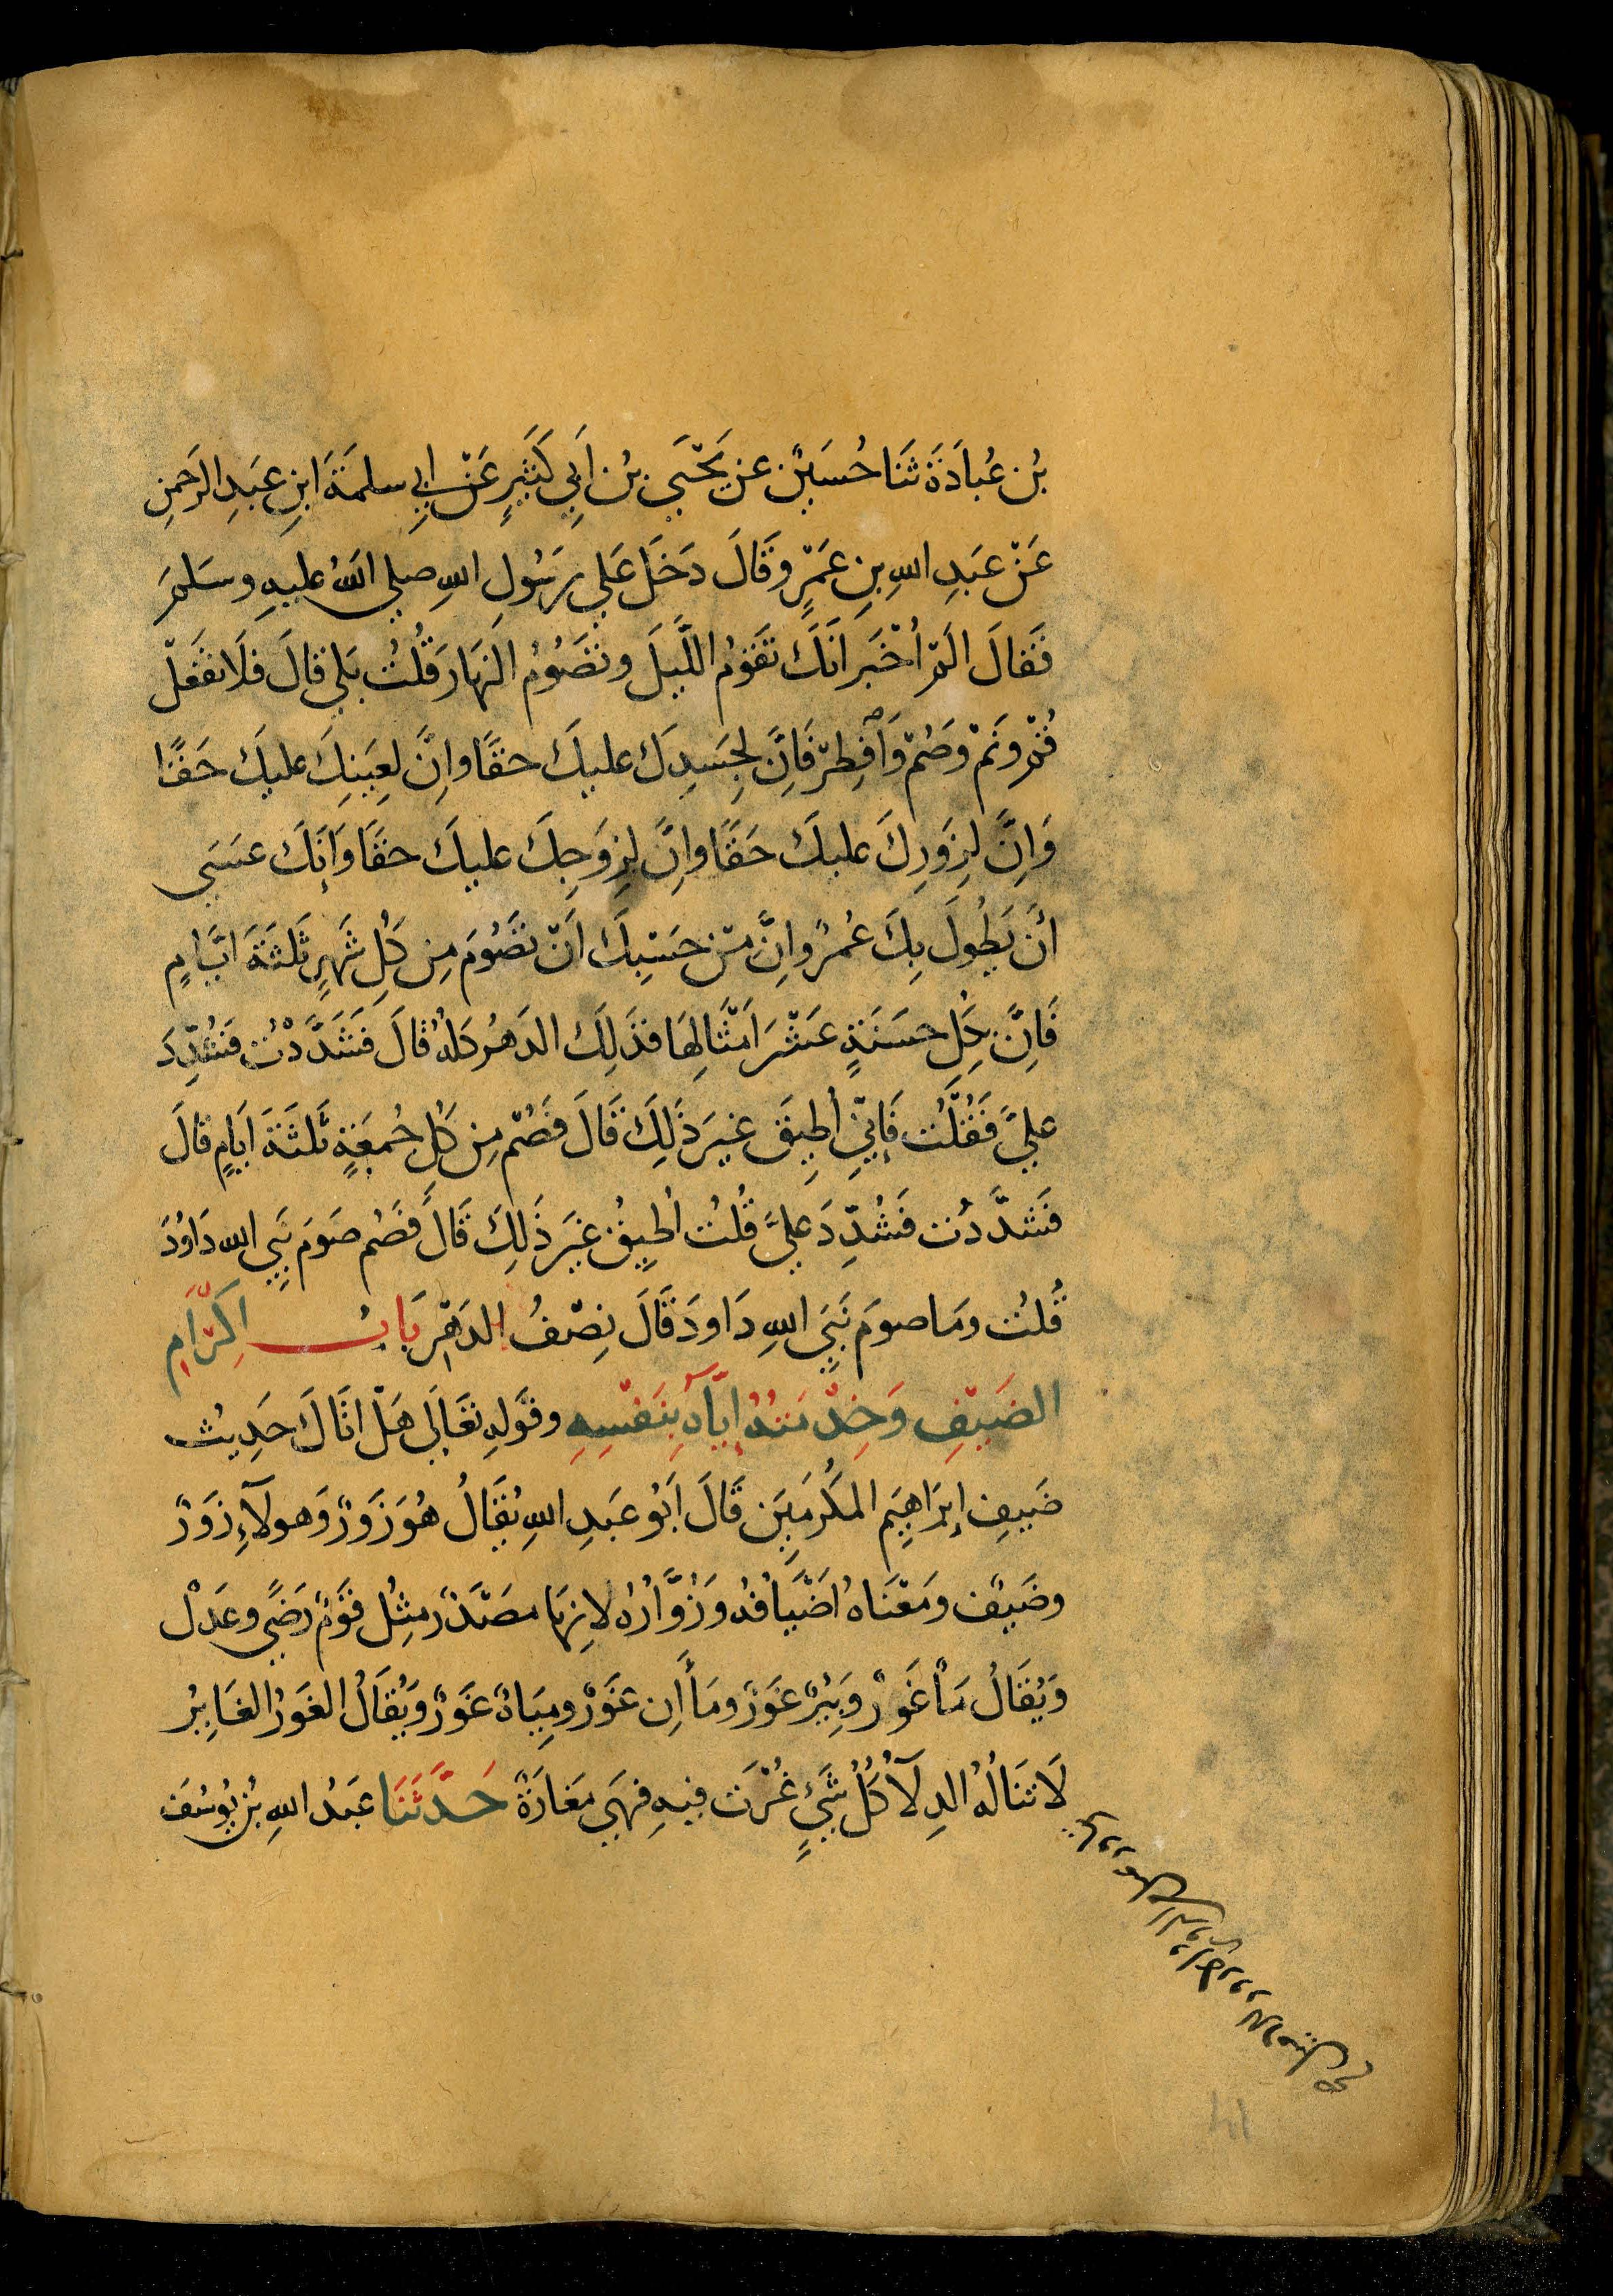 بْن عُبادَةَ ثَنَا حُسَيْن عن يَحْيَى بْن اَبِي كَثِيرٍ عَنْ ابي سلمَةَ ابنِ عَبدِ الرَحمنِ
عَنْ عَبدِ اللهِ بنِ عَمْرٍو قَالَ دَخَلَ عَلي رَسُولِ اللهِ صلي اللهُ عليهِ وسَلمَ
فَقالَ الَمْ أخْبَر انَكَ تقَومُ اللَّيلَ وتصَوُمُ النهَارَ قُلتُ بَلي قالَ فلَا تفعَلْ
قُمْ ونَمْ وصُمْ وَأفْطِرْ فَاِنَّ لجِسَدِكَ عليكَ حقًا واِنَّ لِعَينكَ عليكَ حَقًا
وَاِنَّ لِزَورِكَ عليكَ حَقًا واِنَّ لِزَوجِكَ عليكَ حقًا وَاِنَكَ عسَى
اَنْ يَطُولَ بِكَ عُمرٌ واِنَّ مِنْ حَسبِكَ اَنْ تصَوُمَ مِن كُلِ شَهرٍ ثَلثَةَ ايَّامٍ
فَاِنَّ بِكُلِ حسَنَةٍ عَشْرَ اَمْثَالِهَا فذَلِكَ الدَهرُ كلهُ قالَ فَشَدَّدْتُ فشُدِّدَ
عليَّ فَقُلْتُ فَإنِّي أطِيقَ غيرَ ذَلِكَ قَالَ فَصُمْ مِن كُلِ جُمعَةٍ ثَلثَةَ اَيامٍ قالَ
فَشدَّدتُ فشُدِّدَ عليَّ قُلتُ اُطِيقُ غيَرَ ذَلِكَ قَالَ فَصُم صَومَ نَبيِ الله دَاوُدَ
قُلتُ ومَا صومَ نَبَيِ اللهِ دَاودَ قَالَ نِصْفُ الدَهْرِ بَابُ اكِرَامِ
الضَيْفِ وَخِدْمَتُهُ إيَّاهُ بِنَفْسِهِ وقَولهِ تعَالَى هَلْ اتَاكَ حَدِيثُ
ضَيفِ إبرَاهِيَم المكرَمِينَ قَالَ اَبُو عَبدِ اللهِ يُقَالُ هُوَ زَوْرٌ وَهولآءِ زَوْرٌ
وضَيفٌ ومَعْنَاهُ اَضْيَافُهُ وَزُوَّارُهُ لاِنهَا مصَدَرٌ مِثلُ قَومٌ رَضًى وعَدْلٌ
وَيُقَالُ مَاْ غَورٌ وَبِيْرٌ غوَرٌ ومَاْأنِ غَوَرٌ ومِيَاهٌ غَوَرٌ وَيُقَالُ الغَورُ الغَايِرُ
لَا تنَالُهُ الدِلآ كُلُ شَيٍ غُرْتَ فيهِ فهَيَ مَغارَةٌ حَدَّثَنَا عَبدُ اللهِ بْن يوُسُفَ